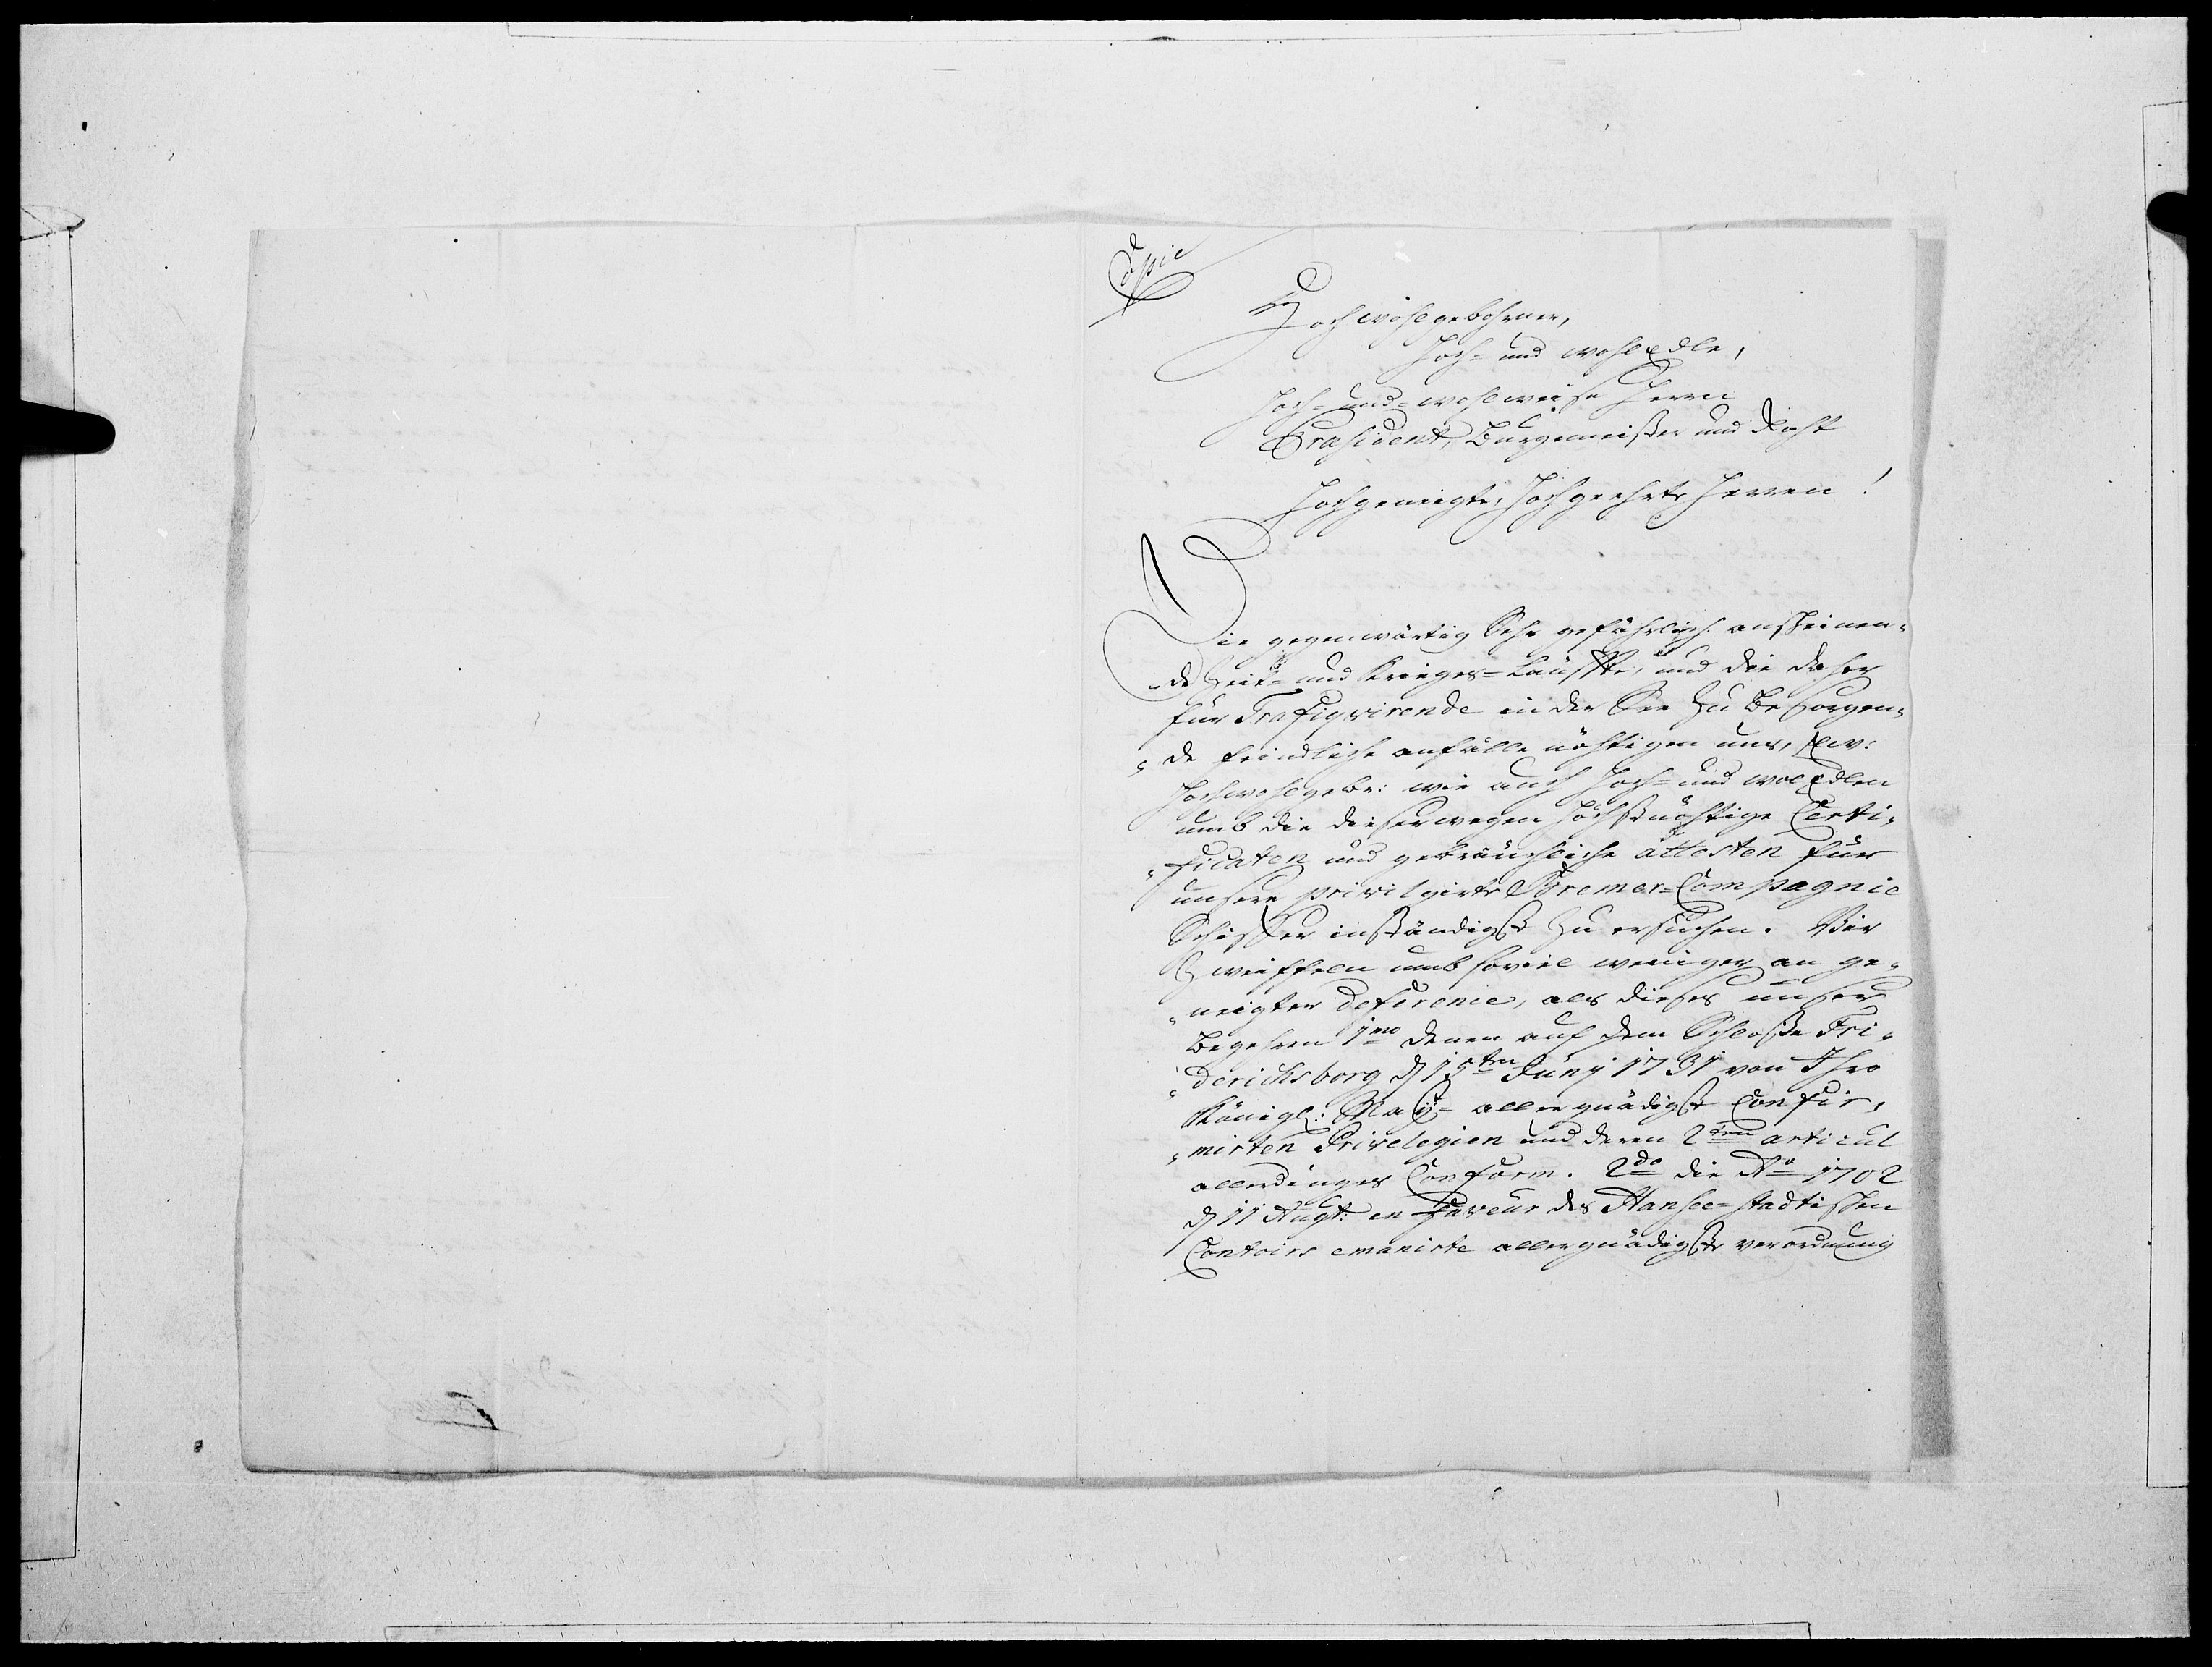 Copie
Hochwohlgebohrner,
Hoch- und wohlEdle,
Hoch- und- wohlweise Herrn
Præsident, Burgemeister und Raht
Hochgeneigte, Hochgeehrte Herren!
Die gegenwärtig Sehr gefährlich anscheinen-
-de Zeit- und Krieges-Läuffte, und die daher
für Trafiqvirende in der See zu Besorgen-
-de feindliche anfälle nöhtigen uns, Ew:
Hochwohlgebr: wie auch Hoch- und wolEdlen
umb die dieserwegen höchstnöhtige Certi-
-ficaten und gebräuchliche attesten für
unsere privilgirte Bremer-Compagnie
Schiffer inständigst zu ersuchen. Wir
Zweiffeln umb soviel weniger an ge-
-neigter deferenie, als dieses unser
Begehren 1mo denen auf dem Schloße Fri-
-derichsborg d 15ten Juny 1731 von Ihro
Königl: May- allergnädigst Confir-
-mirten Privelegien und deren 2ten articul
allerdinges Conform. 2do die Ao 1702
d 11 Augt: en Faveur des Hansee-stadtischen
Contoirs emanirte allergnädigste verordnung